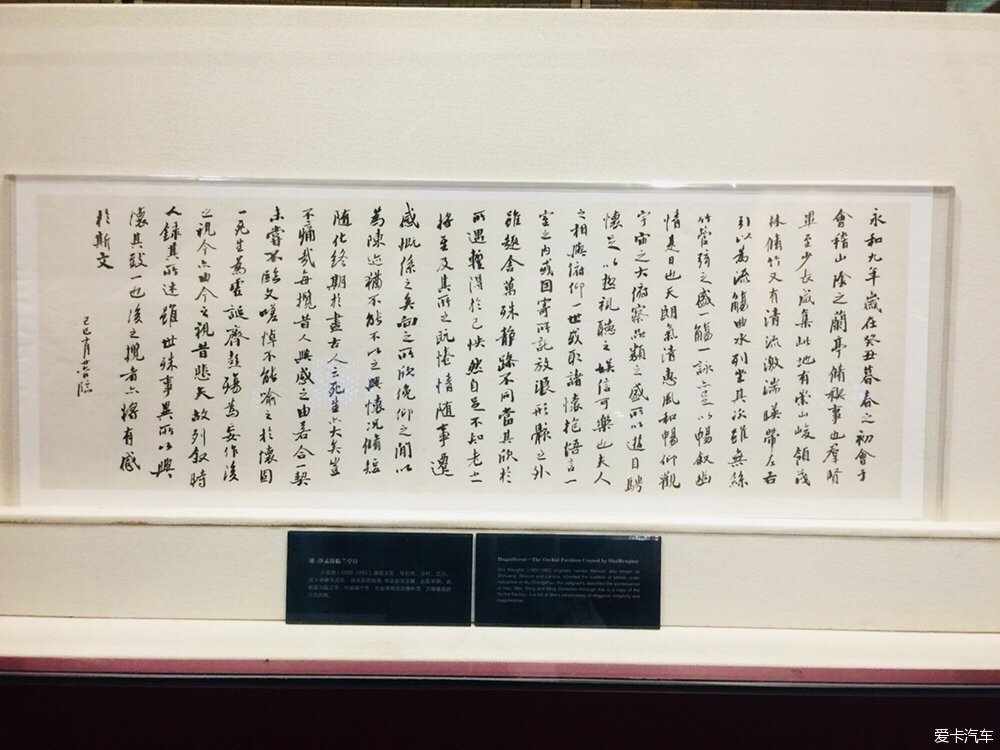 永和九年歲在癸丑暮春之初會于
會稽山陰之蘭亭脩稧事也羣賢
畢至少長咸集此地有崇山峻領茂
林脩竹又有清流激湍暎帶左右
引以為流觴曲水列坐其次雖無絲
竹管弦之盛一觴一詠亦足以暢敘幽
情是日也天朗氣清惠風和暢仰觀
宇宙之大俯察品類之盛所以遊目騁
懷足以極視聽之娛信可樂也夫人
之相與俯仰一世或取諸懷抱悟言一
室之內或因寄所託放浪形骸之外
雖趣舍萬殊靜躁不同當其欣於
所遇蹔得於己怏然自足不知老之
將至及其所之既惓情隨事遷
感慨係之矣向之所欣俛仰之間以
為陳迹猶不能不以之興懷況脩短
隨化終期於盡古人云死生亦大矣豈
不痛哉每攬昔人興感之由若合一契
未嘗不臨文嗟悼不能喻之於懷固
一死生為虛誕齊彭殤為妄作後
之視今亦由今之視昔悲夫故列敘時
人錄其所述雖世殊事異所以興
懷其致一也後之攬者亦將有感
於斯文
己巳
Magnificent—The Orchid Pavilion Copied by ShaMenghai
爱卡汽车